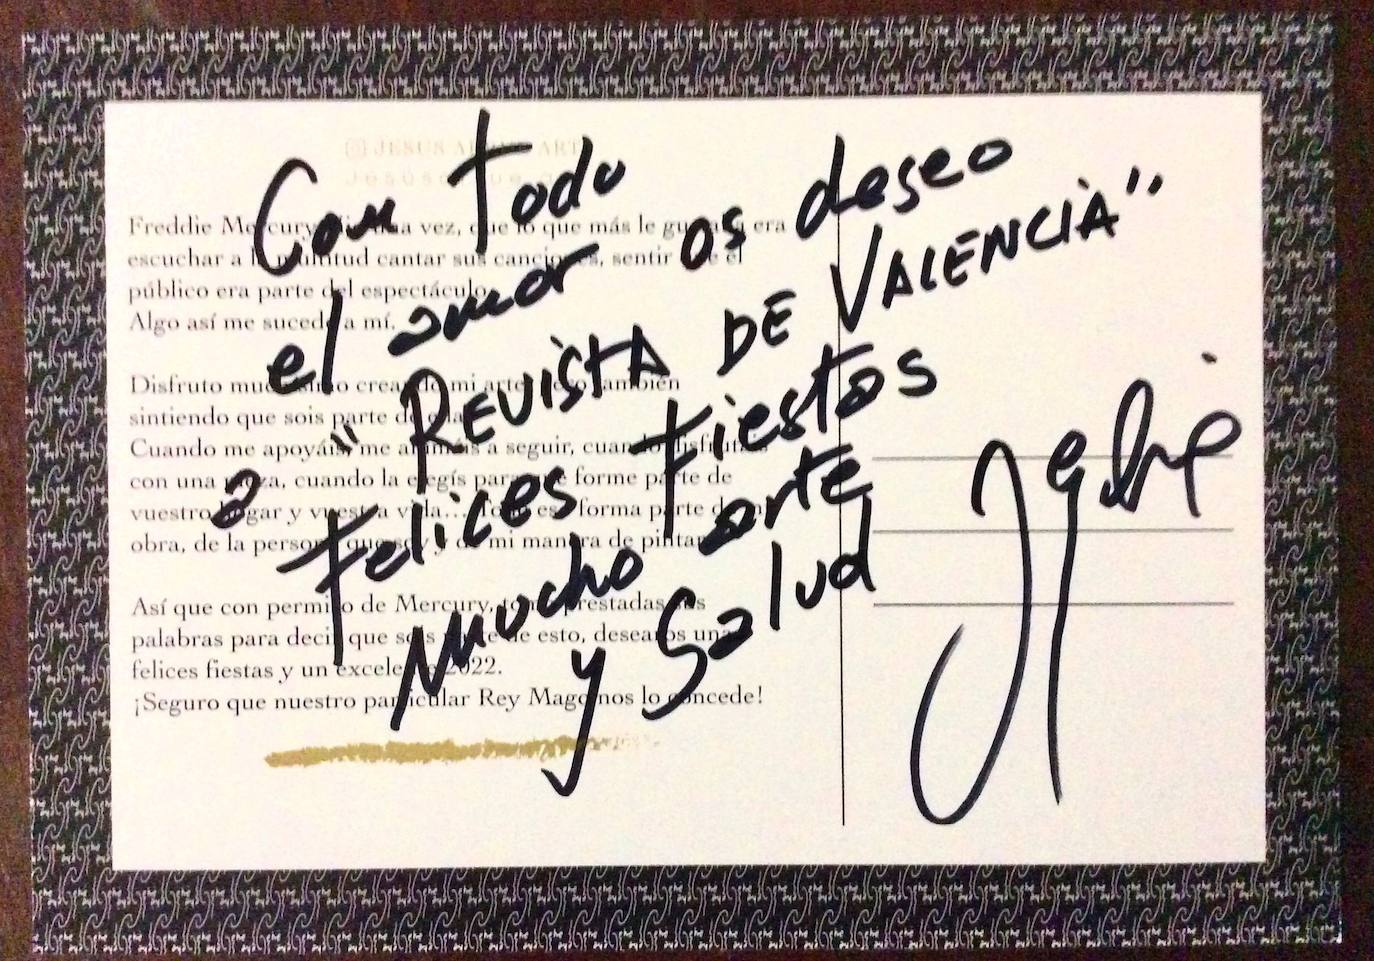 JESUS ART
Freddie Mercury una vez, que lo que más le era
escuchar a la multitud cantar sus canciones, sentir que el
público era parte del espectáculo.
Algo así me sucede a mí.
Disfruto creando mi arte también
sintiendo que sois parte de
Cuando me apoyáis, me animáis a seguir, cuando
con una pieza, cuando la elegís para que forme parte de
vuestro hogar y vuestra vida... forma parte de mi
obra, de la persona que soy y de mi manera de pintar.
Así que con permiso de Mercury, tomo prestadas sus
palabras para decir que sois parte de esto, desearos unas
felices fiestas y un excelente 2022.
¡Seguro que nuestro particular Rey Mago nos lo concede!
Con todo
el amor os deseo
a "REVISTA DE VALENCIA"
Felices Fiestas
Mucho arte
y Salud